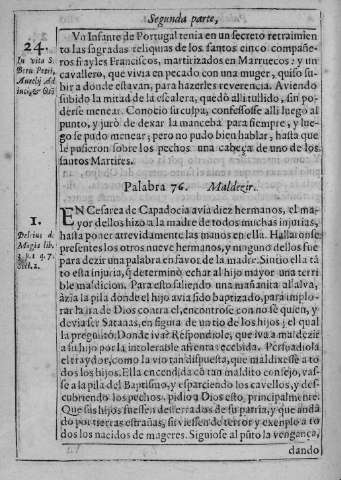 Segunda parte,
24.
In vita S.
Vn Infante de Portugal tenia en vn secreto retraimien
to las sagradas reliquias de los santos cinco compañe-
ros frayles Franciscos, martirizados en Marruecos: y vn
cavallero, que vivia en pecado con vna muger, quiso su-
bir a donde estavan, para hazerles reverencia. Aviendo
subido la mitad de la escalera, quedò alli tullido, sin po-
derse menear. Conociò su culpa, confessosse alli luego al
punto, y jurò de dexar la manceba para siempre, y lue-
go se pudo menear; pero no pudo bien hablar, hasta que
le pusieron sobre los pechos vna cabeça de vno de los
santos Martires.
Palabra 76. Maldezir.
1.
Delrius d.
Magia lib.
EN Cesarea de Capadocia avia diez hermanos, el ma-
yor dellos hizo a la madre de todos muchas injurias,
hasta poner atrevidamente las manos en ella. Hallaronse
presentes los otros nueve hermanos, y ninguno dellos fue
para dezir vna palabra en favor de la madre. Sintio ella tã
to esta injuria, q̃ determinò echar al hijo mayor vna terri
ble maldicion. Para esto saliendo vna mañanita al alva,
àzia la pila donde el hijo avia sido baptizado, para implo-
rar la ira de Dios contra el, encontrose con no se quien, y
devia ser Satanas, en figura de vn tio de los hijos; el qual
la preguntò; Donde iva? Respondiole, que iva a maldezir
a su hijo por la intolerable afrenta recebida. Persuadiola
el traydor, como la vio tan dispuesta, que maldixesse a to
dos los hijos. Ella encendida cõ tan maldito consejo, vas-
se a la pila del Baptismo, y esparciendo los cavellos, y des-
cubriendo los pechos, pidio a Dios esto, principalmente.
Que sus hijos fuessen desterrados de su patria, y que andã
do por tierras estrañas, sirviessen de terror y exemplo a to
dos los nacidos de mugeres. Siguiose al pũto la vengança,
dando